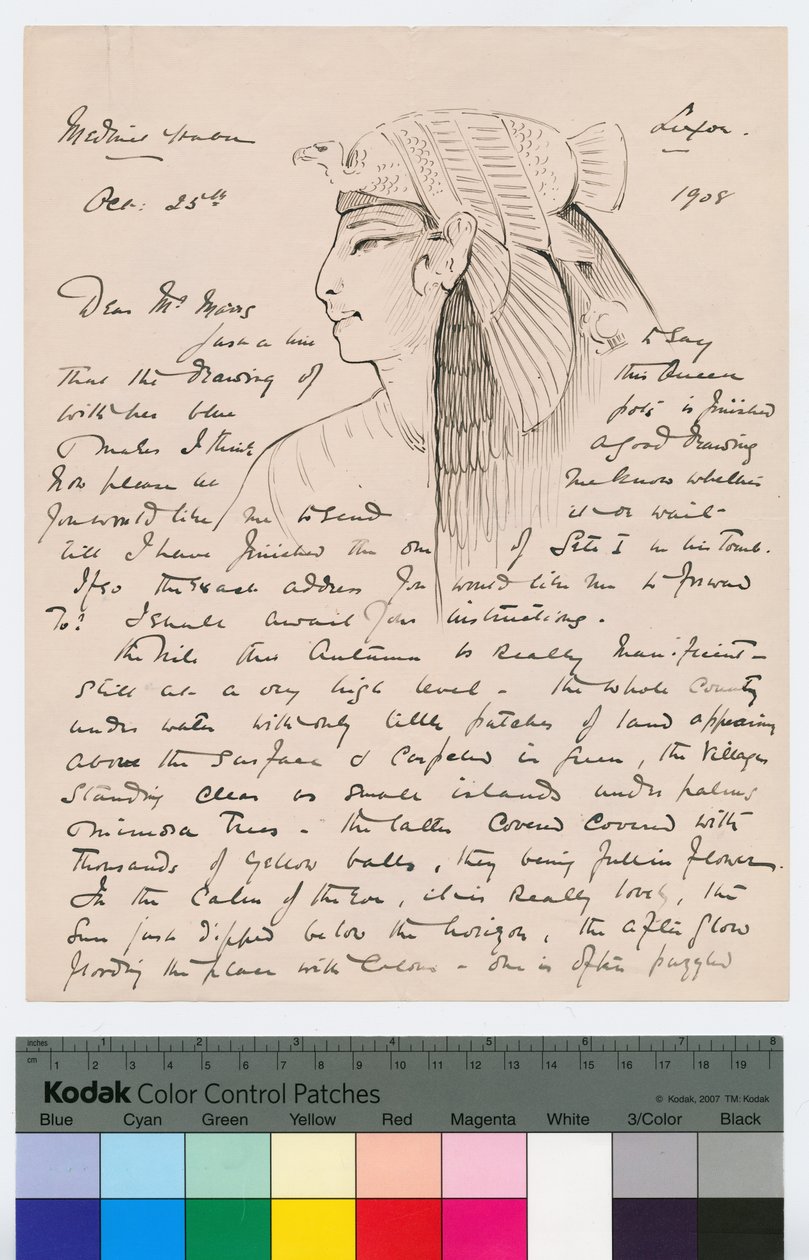 Medinet Habu Luxor.
Oct: 25th 1908
Dear Mr
Just a line to say
that the drawing of this Queen
with her blue is finished
& makes I think a good drawing
Now please let me know whether
you would like me to send it or wait
till I have finished the one of Seti I in his Tomb.
If so the exact address you would like me to forward
To? I shall await your instructions.
The Nile this Autumn is really Mannificient -
Still at a very high level - the whole County
under water with only little patches of land appearing
above the surface & carpeted in green, the Villages
standing clear as small islands under palms
& mimosa Trees - the latter Covered Covered with
Thousands of yellow balls, they being full in flower.
In the Calm of the Eve, it is really lovely, the
Sun just dipped below the horizon, the after glow
flooding the place with Colour - one is often puzzled
inches 1 2 3 4 5 6 7 8
cm 1 2 3 4 5 6 7 8 9 10 11 12 13 14 15 16 17 18 19
Kodak Color Control Patches © Kodak, 2007 TM: Kodak
Blue Cyan Green Yellow Red Magenta White 3/Color Black